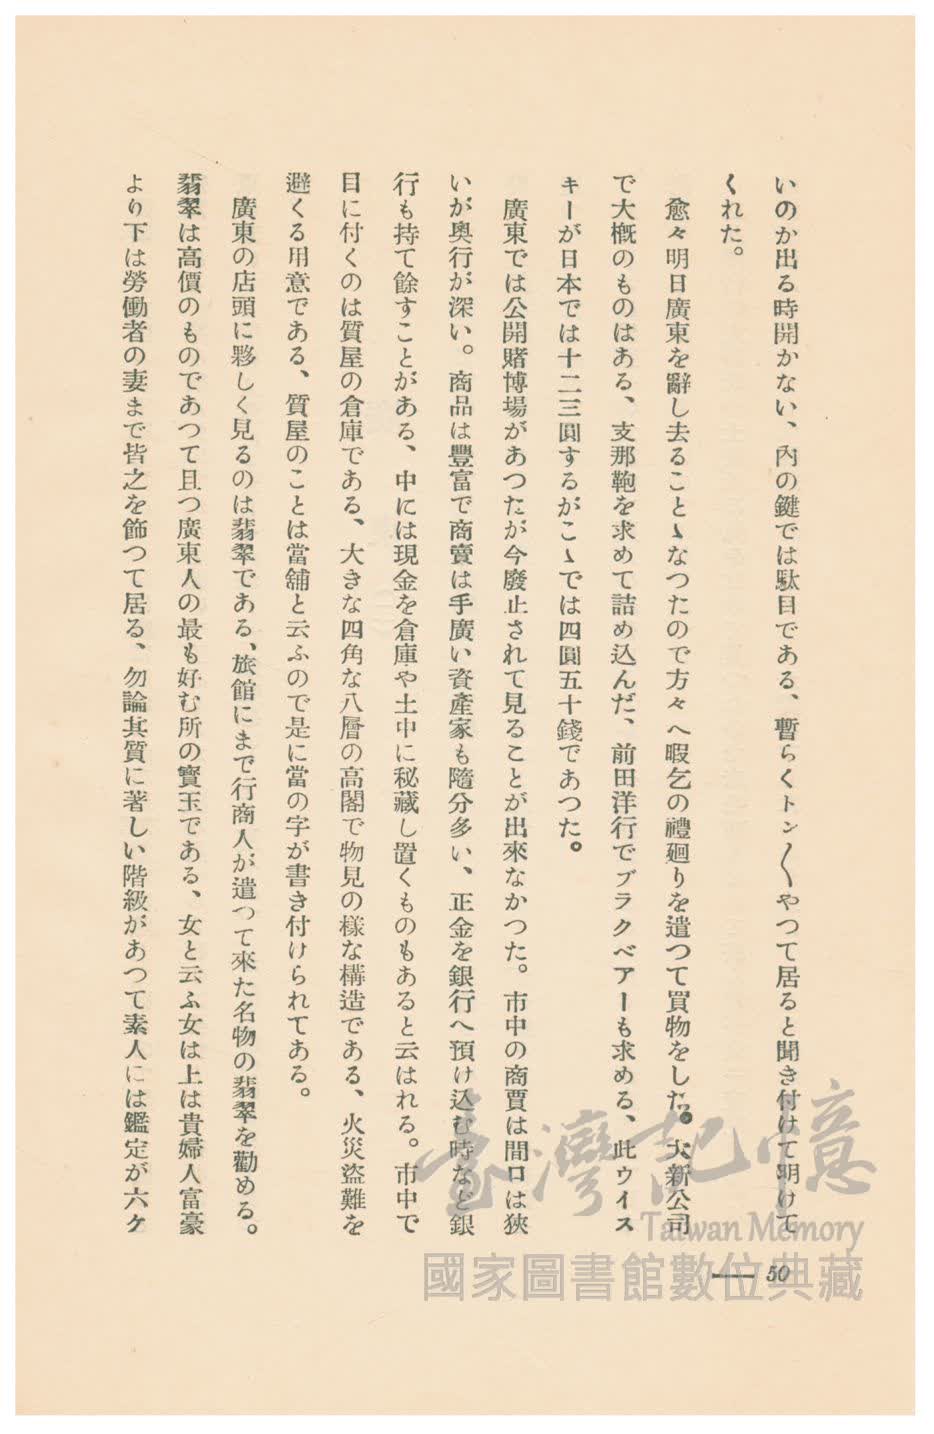 いのか出る時開かない、內の鍵では駄目である、暫らくトン〳〵やつて居ると聞き付けて明けて
くれた。
愈々明日廣東を辭し去ることゝなつたので方々へ暇乞の禮廻りを遣つて買物をした。大新公司
で大槪のものはある、支那鞄を求めて詰め込んだ、前田洋行でブラクベアーも求める、此ウイス
キーが日本では十二三圓するがこゝでは四圓五十錢であつた。
廣東では公開賭博場があつたが今廢止されて見ることが出來なかつた。市中の商賈は間口は狹
いが奧行が深い。商品は豐富で商賣は手廣い資產家も隨分多い、正金を銀行へ預け込む時など銀
行も持て餘すことがある、中には現金を倉庫や土中に秘藏し置くものもあると云はれる。市中で
目に付くのは質屋の倉庫である、大きな四角な八層の高閣で物見の樣な構造である、火災盜難を
避くる用意である、質屋のことは當舖と云ふので是に當の字が書き付けられてある。
廣東の店頭に夥しく見るのは翡翠である、旅館にまで行商人が遣つて來た名物の翡翠を勸める。
翡翠は高價のものであつて且つ廣東人の最も好む所の寶玉である、女と云ふ女は上は貴婦人富豪
より下は勞働者の妻まで皆之を飾つて居る、勿論其質に著しい階級があつて素人には鑑定が六ケ
50
臺灣記憶
Taiwan Memory
國家圖書館數位典藏